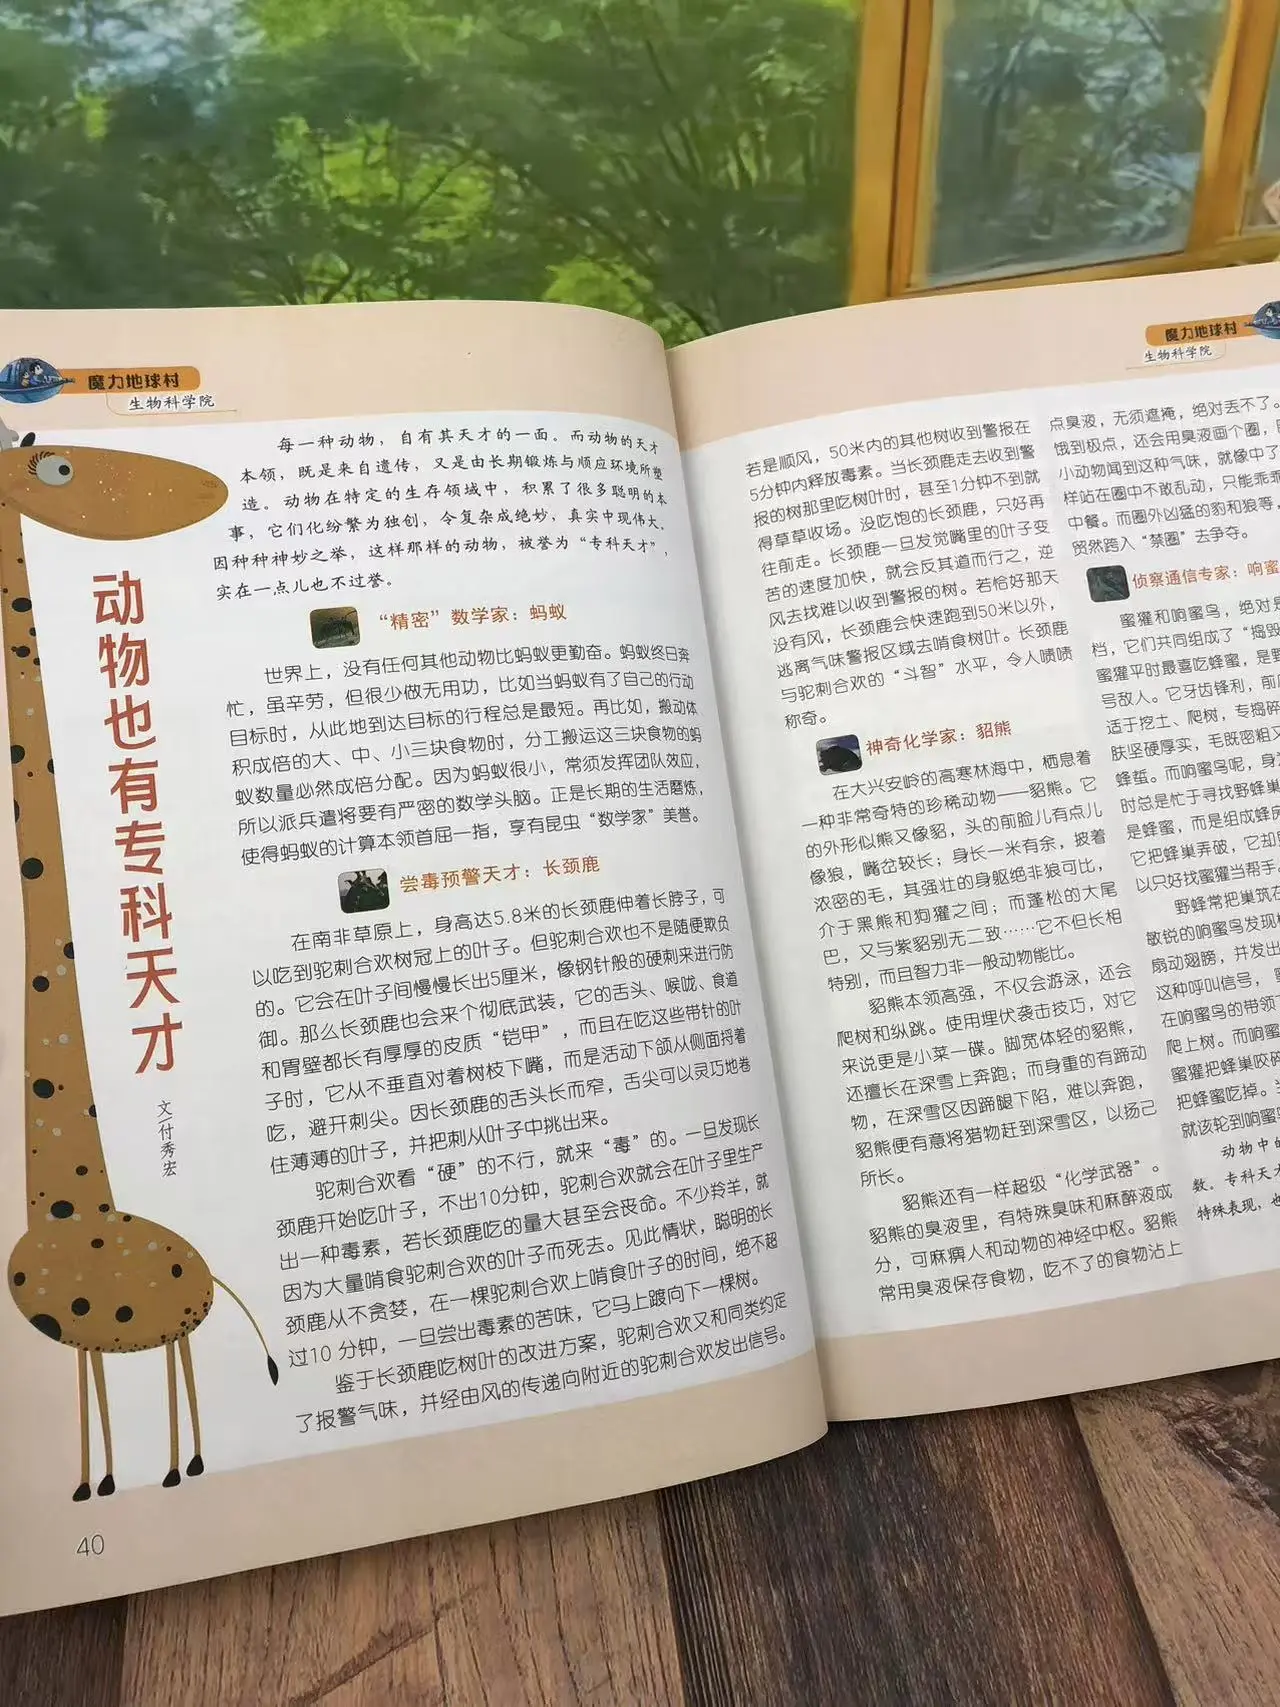 魔力地球村
生物科学院
动物也有专科天才
文/付秀宏
每一种动物，自有其天才的一面。而动物的天才
本领，既是来自遗传，又是由长期锻炼与顺应环境所塑
造。动物在特定的生存领域中，积累了很多聪明的本
事，它们化纷繁为独创，令复杂成绝妙，真实中现伟大。
因种种神妙之举，这样那样的动物，被誉为“专科天才”，
实在一点儿也不过誉。
“精密”数学家：蚂蚁
世界上，没有任何其他动物比蚂蚁更勤奋。蚂蚁终日奔
忙，虽辛劳，但很少做无用功，比如当蚂蚁有了自己的行动
目标时，从此地到达目标的行程总是最短。再比如，搬动体
积成倍的大、中、小三块食物时，分工搬运这三块食物的蚂
蚁数量必然成倍分配。因为蚂蚁很小，常须发挥团队效应，
所以派兵遣将要有严密的数学头脑。正是长期的生活磨炼，
使得蚂蚁的计算本领首屈一指，享有昆虫“数学家”美誉。
尝毒预警天才：长颈鹿
在南非草原上，身高达5.8米的长颈鹿伸着长脖子，可
以吃到驼刺合欢树冠上的叶子。但驼刺合欢也不是随便欺负
的。它会在叶子间慢慢长出5厘米，像钢针般的硬刺来进行防
御。那么长颈鹿也会来个彻底武装，它的舌头、喉咙、食道
和胃壁都长有厚厚的皮质“铠甲”，而且在吃这些带针的叶
子时，它从不垂直对着树枝下嘴，而是活动下颌从侧面捋着
吃，避开刺尖。因长颈鹿的舌头长而窄，舌尖可以灵巧地卷
住薄薄的叶子，并把刺从叶子中挑出来。
驼刺合欢看“硬”的不行，就来“毒”的。一旦发现长
颈鹿开始吃叶子，不出10分钟，驼刺合欢就会在叶子里生产
出一种毒素，若长颈鹿吃的量大甚至会丧命。不少羚羊，就
因为大量啃食驼刺合欢的叶子而死去。见此情状，聪明的长
颈鹿从不贪婪，在一棵驼刺合欢上啃食叶子的时间，绝不超
过10 分钟，一旦尝出毒素的苦味，它马上踱向下一棵树。
鉴于长颈鹿吃树叶的改进方案，驼刺合欢又和同类约定
了报警气味，并经由风的传递向附近的驼刺合欢发出信号。
40
魔力地球村
生物科学院
若是顺风，50米内的其他树收到警报在
5分钟内释放毒素。当长颈鹿走去收到警
报的树那里吃树叶时，甚至1分钟不到就
得草草收场。没吃饱的长颈鹿，只好再
往前走。长颈鹿一旦发觉嘴里的叶子变
苦的速度加快，就会反其道而行之，逆
风去找难以收到警报的树。若恰好那天
没有风，长颈鹿会快速跑到50米以外，
逃离气味警报区域去啃食树叶。长颈鹿
与驼刺合欢的“斗智”水平，令人啧啧
称奇。
神奇化学家：貂熊
在大兴安岭的高寒林海中，栖息着
一种非常奇特的珍稀动物——貂熊。它
的外形似熊又像貂，头的前脸儿有点儿
像狼，嘴岔较长；身长一米有余，披着
浓密的毛，其强壮的身躯绝非狼可比，
介于黑熊和狗獾之间；而蓬松的大尾
巴，又与紫貂别无二致……它不但长相
特别，而且智力非一般动物能比。
貂熊本领高强，不仅会游泳，还会
爬树和纵跳。使用埋伏袭击技巧，对它
来说更是小菜一碟。脚宽体轻的貂熊，
还擅长在深雪上奔跑；而身重的有蹄动
物，在深雪区因蹄腿下陷，难以奔跑，
貂熊便有意将猎物赶到深雪区，以扬己
所长。
貂熊还有一样超级“化学武器”。
貂熊的臭液里，有特殊臭味和麻醉液成
分，可麻痹人和动物的神经中枢。貂熊
常用臭液保存食物，吃不了的食物沾上
点臭液，无须遮掩，绝对丢不了。
饿到极点，还会用臭液画个圈，
小动物闻到这种气味，就像中了
样站在圈中不敢乱动，只能乖乖
中餐。而圈外凶猛的豹和狼等，
贸然跨入“禁圈”去争夺。
侦察通信专家：响蜜
蜜獾和响蜜鸟，绝对是
档，它们共同组成了“捣毁
蜜獾平时最喜吃蜂蜜，是野
号敌人。它牙齿锋利，前
适于挖土、爬树，专捣碎
肤坚硬厚实，毛既密粗又
蜂蜇。而响蜜鸟呢，身
时总是忙于寻找野蜂巢
是蜂蜜，而是组成蜂房
它把蜂巢弄破，它却
以只好找蜜獾当帮手。
野蜂常把巢筑在
敏锐的响蜜鸟发现
扇动翅膀，并发出
这种呼叫信号，
在响蜜鸟的带领
爬上树。而响蜜
蜜獾把蜂巢咬碎
把蜂蜜吃掉。
就该轮到响蜜鸟
动物中的
数。专科天
特殊表现，也